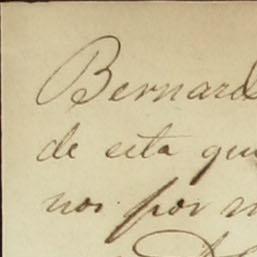 Bernard
de esta que
nos por